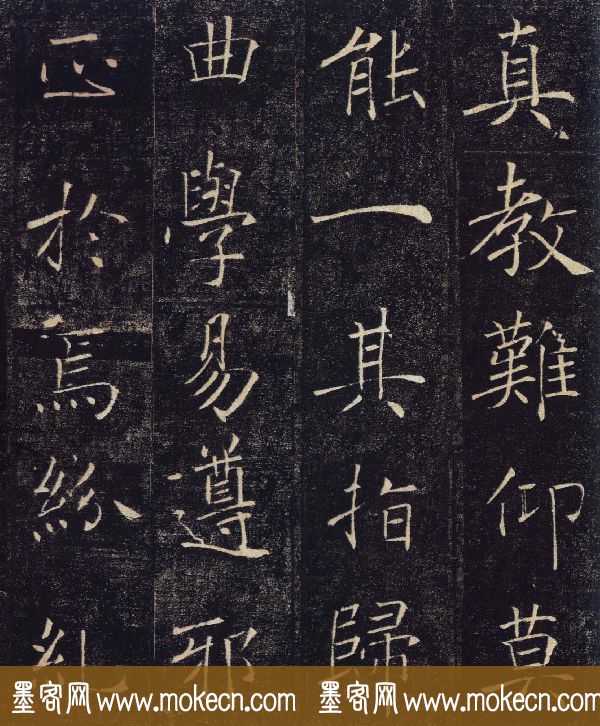 真教難仰莫
能一其指歸
曲學易遵邪
正於焉紛糺
墨客网 www.mokecn.com 墨客网 www.mokecn.com